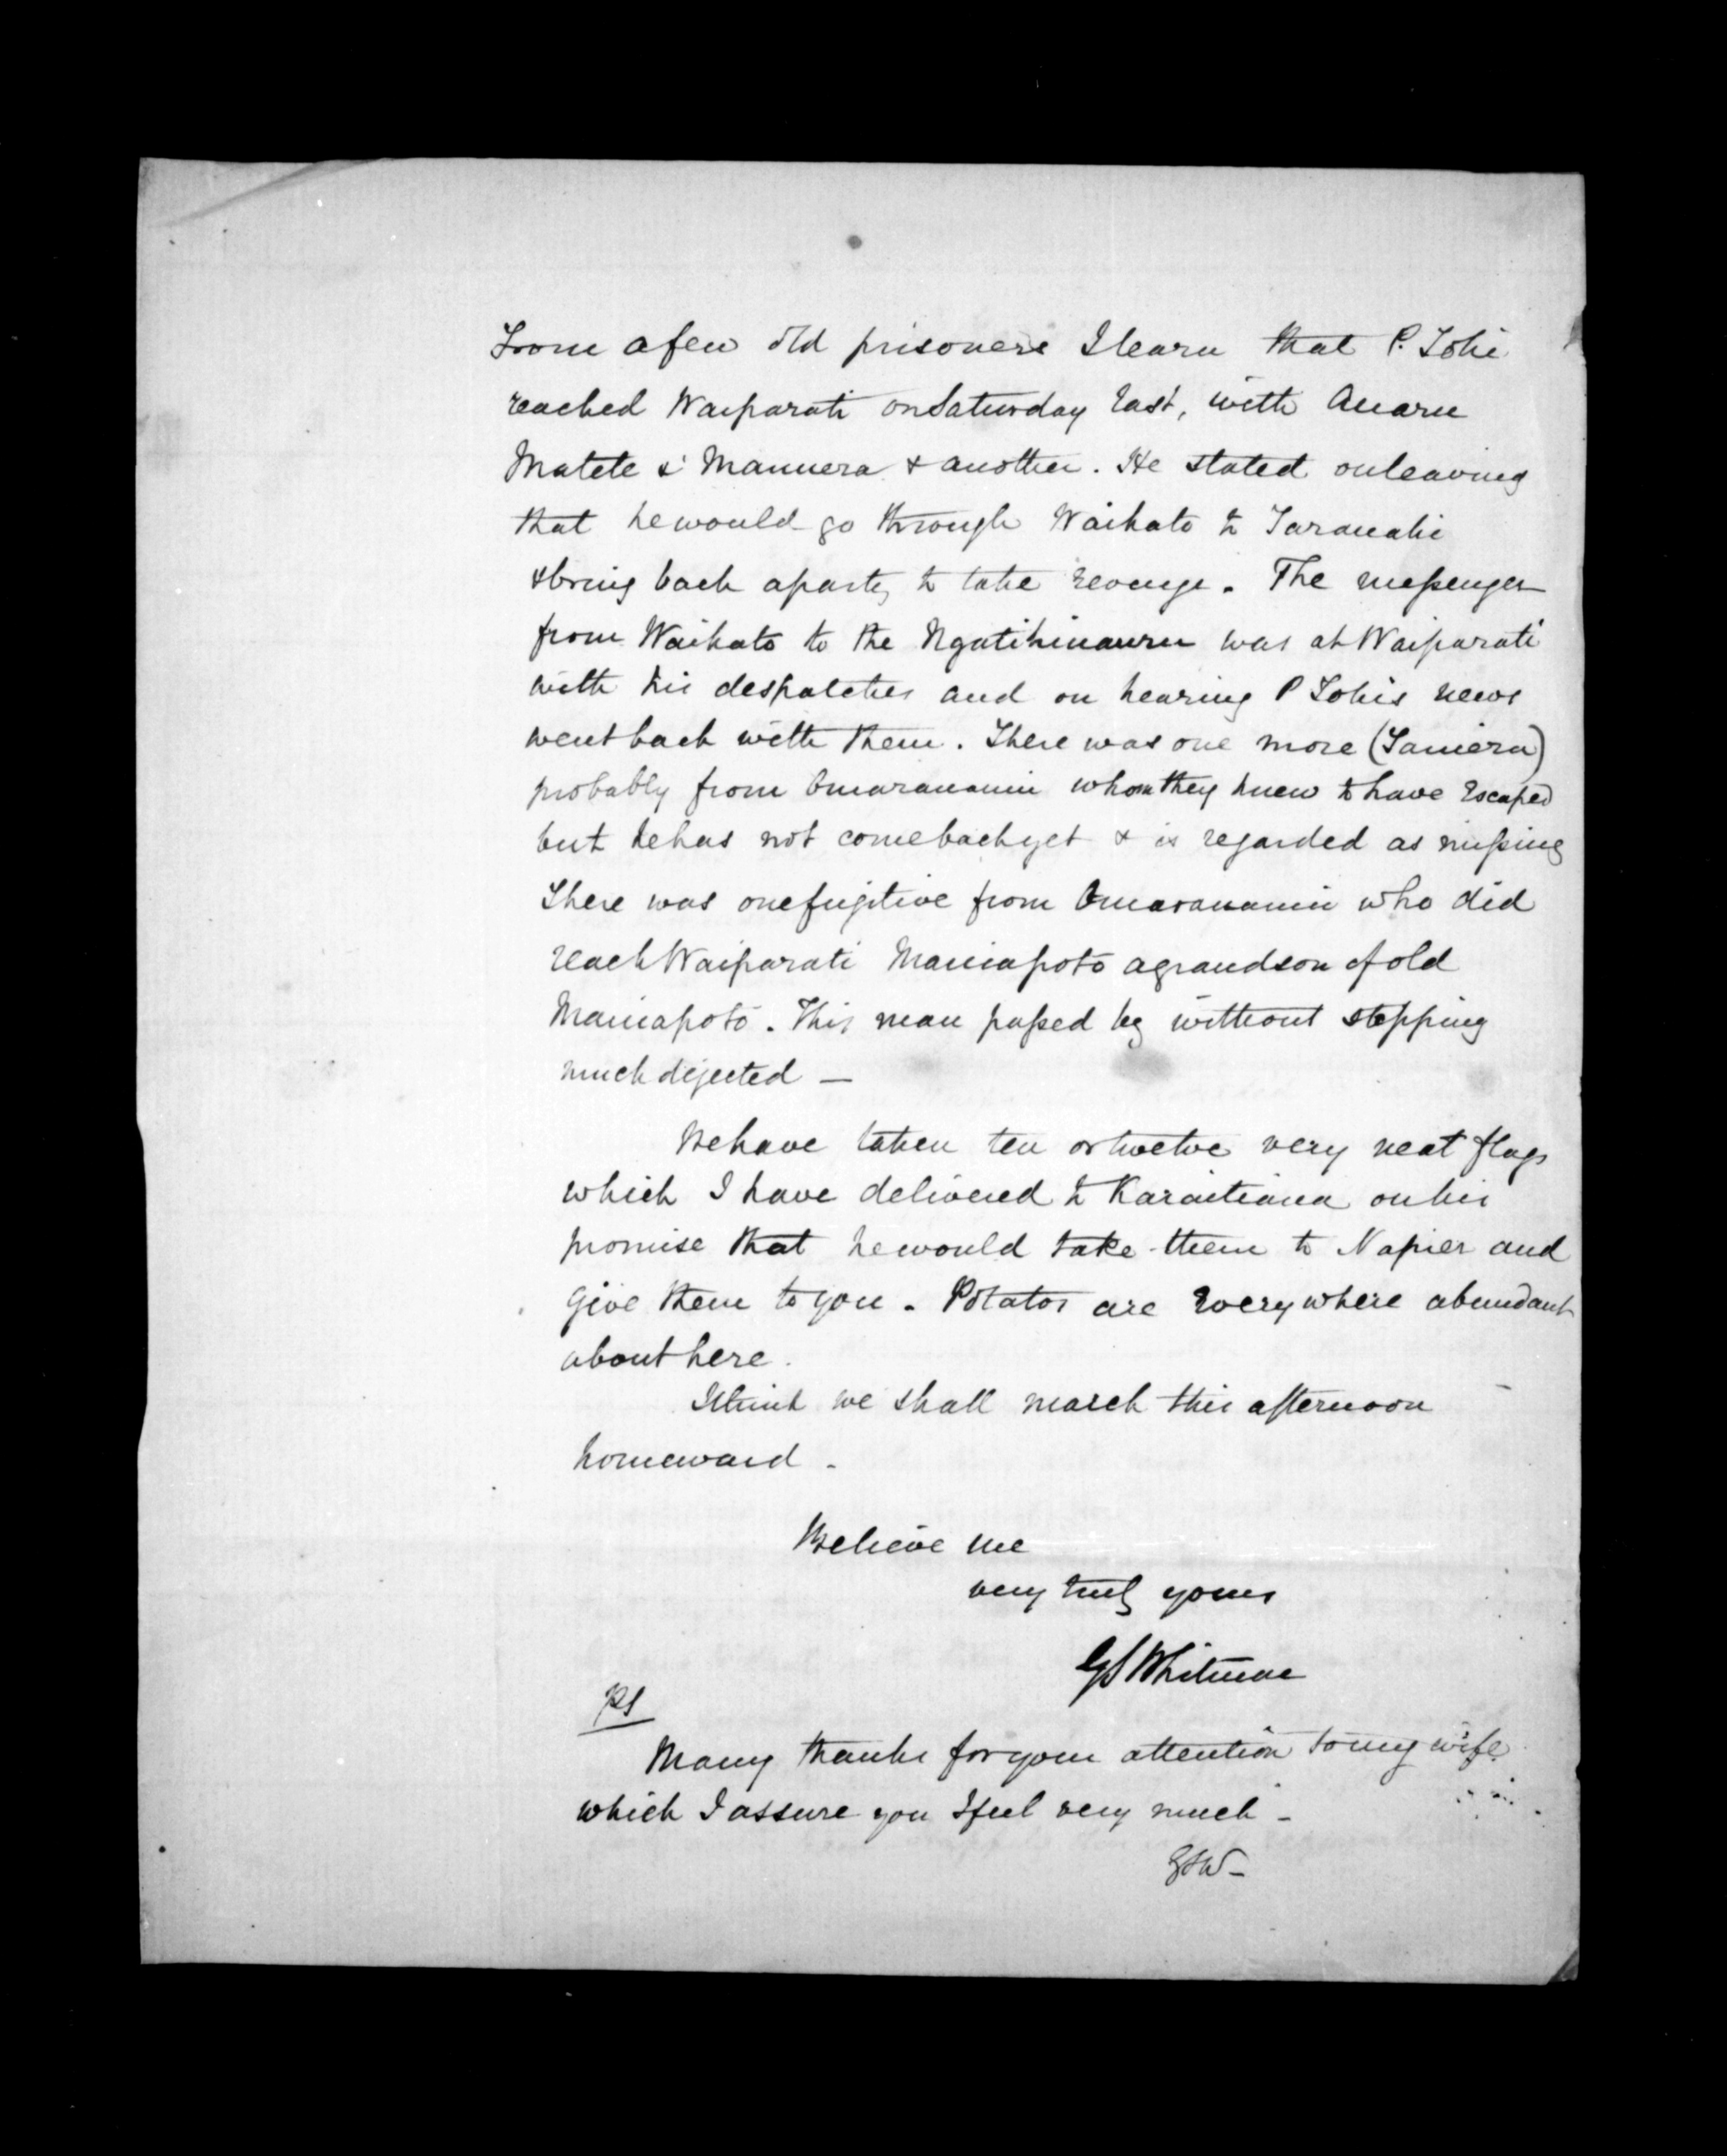 From a few old prisoners I learn that P. Tohi
reached Waiparati on Saturday last, with Anaru
Matete & Manuera & another. He stated on leaving
that he would go through Waikato to Taranaki
& bring back a party to take revenge. The messenger
from Waikato to the Ngatihinauru was at Waiparati
with his despatches and on hearing P Tohis news
went back with them. There was one more (Tamiera)
probably from Omaranamui whom they knew to have Escaped
but he has not come back yet & is regarded as missing
There was one fugitive from Omaranamui who did
reach Waiparati Maniapoto a grandson of old
Maniapoto. This man passed by without stopping
much dejected —
We have taken ten or twelve very neat flags
which I have delivered to Karaitiana on his
promise that he would take them to Napier and
give them to you. Potatos are Everywhere abundant
about here.
I think we shall march this afternoon
homeward.
Believe me
very truly yours
GS Whitmore
PS
Many thanks for your attention to my wife
which I assure you I feel very much -
GSW-